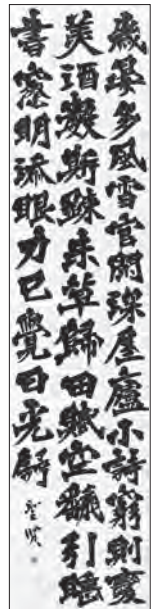 歲晏多風雪官閒深屋廬小詩窮則變
美酒凝斯疎未草歸田賦空翻引睡
書窓明添眼力已覺日光舒